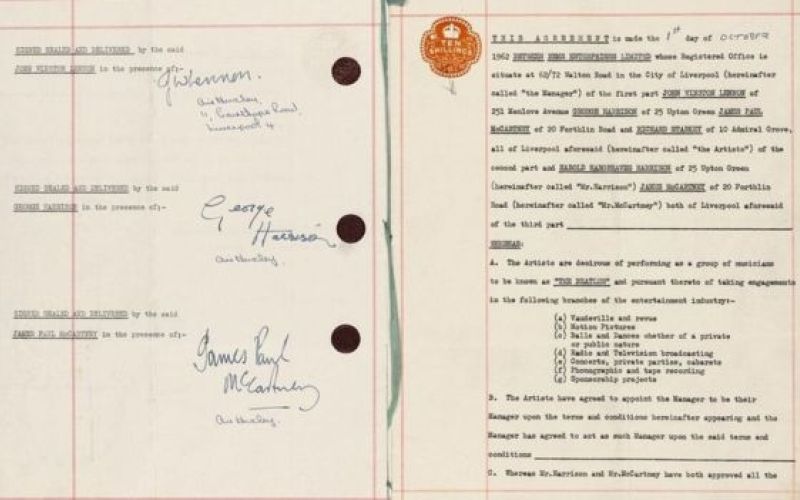 SIGNED SEALED AND DELIVERED by the said
JOHN WINSTON LENNON in the presence of:-
JWLennon.
Liverpool 4
SIGNED SEALED AND DELIVERED by the said
GEORGE HARRISON in the presence of:-
George
Harrison
SIGNED SEALED AND DELIVERED by the said
JAMES PAUL McCARTNEY in the presence of:-
James Paul
McCartney
TEN
SHILLINGS
THIS AGREEMENT is made the 1st day of OCTOBER
1962 BETWEEN NEMS ENTERPRISES LIMITED whose Registered Office is
situate at 62/72 Walton Road in the City of Liverpool (hereinafter
called "the Manager") of the first part JOHN WINSTON LENNON of
251 Menlove Avenue GEORGE HARRISON of 25 Upton Green JAMES PAUL
McCARTNEY of 20 Forthlin Road and RICHARD STARKEY of 10 Admiral Grove,
all of Liverpool aforesaid (hereinafter called "the Artists") of the
second part and HAROLD HARGREAVES HARRISON of 25 Upton Green
(hereinafter called "Mr.Harrison") JAMES McCARTNEY of 20 Forthlin
Road (hereinafter called "Mr.McCartney") both of Liverpool aforesaid
of the third part
WHEREAS:
A. The Artists are desirous of performing as a group of musicians
to be known as "THE BEATLES" and pursuant thereto of taking engagements
in the following branches of the entertainment industry:-
(a) Vaudeville and revue
(b) Motion Pictures
(c) Balls and Dances whether of a private
or public nature
(d) Radio and Television broadcasting
(e) Concerts, private parties, cabarets
(f) Phonographic and tape recording
(g) Sponsorship projects
B. The Artists have agreed to appoint the Manager to be their
Manager upon the terms and conditions hereinafter appearing and the
Manager has agreed to act as such Manager upon the said terms and
conditions
C. Whereas Mr.Harrison and Mr.McCartney have both approved all the